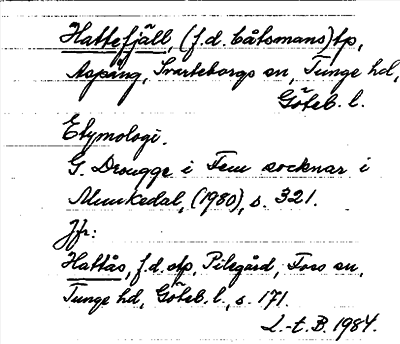 Hattefjäll, (f.d. båtsmans)tp,
Aspäng, Svarteborgs sn, Tunge hd,
Göteb. l.
Etymologi.
G. Drougge i Fem socknar i
Munkedal, (1980), s. 321.
Jfr:
Hattås, f.d. stp, Pilegård, Foss sn,
Tunge hd, Göteb. l., s. 171.
L.-t. B. 1984.